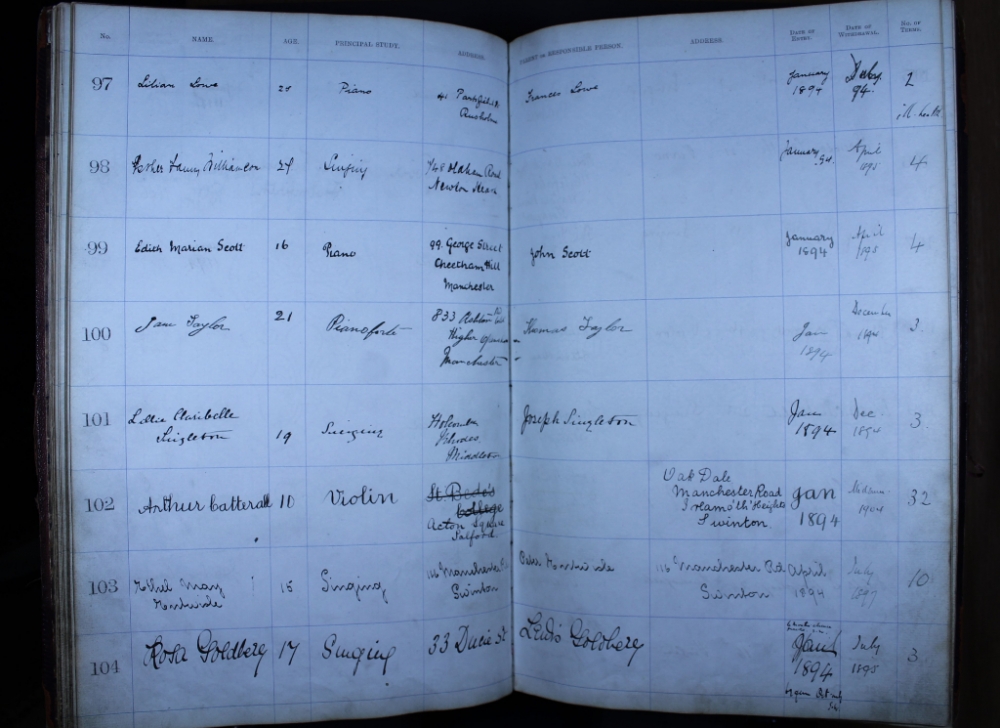 No. NAME. AGE. PRINCIPAL STUDY. ADDRESS. PARENT or RESPONSIBLE PERSON. ADDRESS DATE OF ENTRY. DATE OF WITHDRAWAL. NO. OF TERMS.
97 Lilian Lowe Piano 41 Frances Lowe January 1894 94. 2
Rusholme
ill-health
98 Esther Fanny Williamson 24 Singing Oldham Road January 94. April 1895 4
Newton Heath
99 Edith Marian Scott 16 Piano 99. George Street John Scott January 1894 April 1895 4
Cheetham Hill
Manchester
100 Jane Taylor 21 Pianoforte 833 Ashton Thomas Taylor Jan 1894 December 1894 3.
Higher
Manchester
101 Claribelle Singleton 19 Singing Joseph Singleton Jan 1894 Dec 1894 3.
Rhodes
Middleton
102 Arthur Catterall 10 Violin St. Bede's College Oak Dale Jan 1894 1904 32
Acton Square Manchester Road
Salford. Irlams o' th' Heights
Swinton
103 Ethel May 15 Singing 116 Manchester Rd Peter 116 Manchester Rd April 1894 July 1897 10
Swinton Swinton
104 Rosa Goldberg 17 Singing 33 Ducie St Lewis Goldberg Jan 1894 July 1895 3